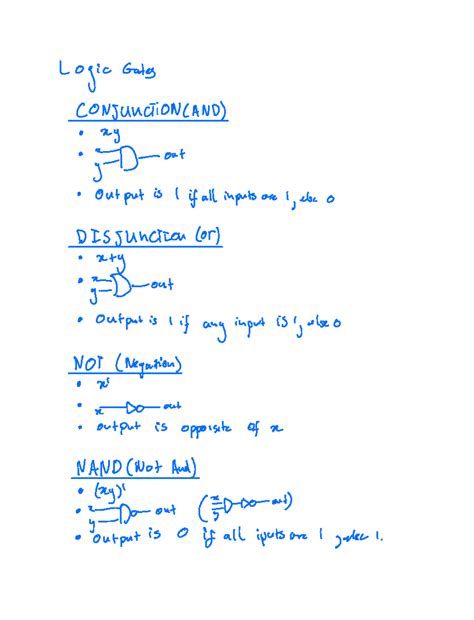 Logic Gates
CONJUNCTION (AND)
• xy
• x y out
• Output is 1 if all inputs are 1, else 0
DISJUNCTION (or)
• x+y
• x y out
• Output is 1 if any input is 1, else 0
NOT (Negation)
• x'
• x out
• output is opposite of x
NAND (Not And)
• (xy)'
• x y out ( x y out)
• Output is 0 if all iputs are 1, else 1.